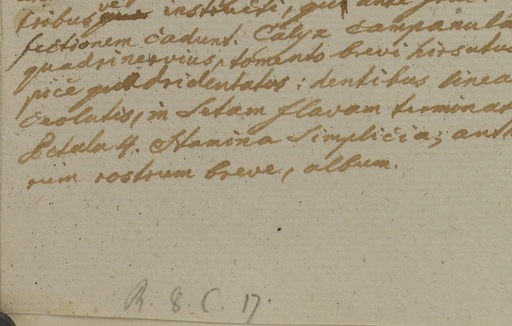 tribus ve instructi, qui ante
fectionem cadunt. Calyx campanula
quadrinervius, tomento brevi hirsutus
pice quadridentatus: dentibus linea
ceolatis, in setam flavam terminat
Petala 4. Stamina simplicia; anth
rum rostrum breve, album.
R. 8. C. 17.